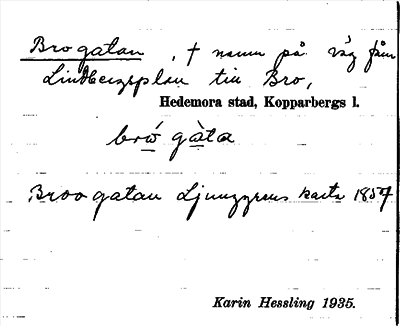 Brogatan, † namn på väg från
Lindbergsplan till Bro,
Hedemora stad, Kopparbergs l.
brώ gàta
Broo gatan Ljunggrens karta 1857
Karin Hessling 1935.